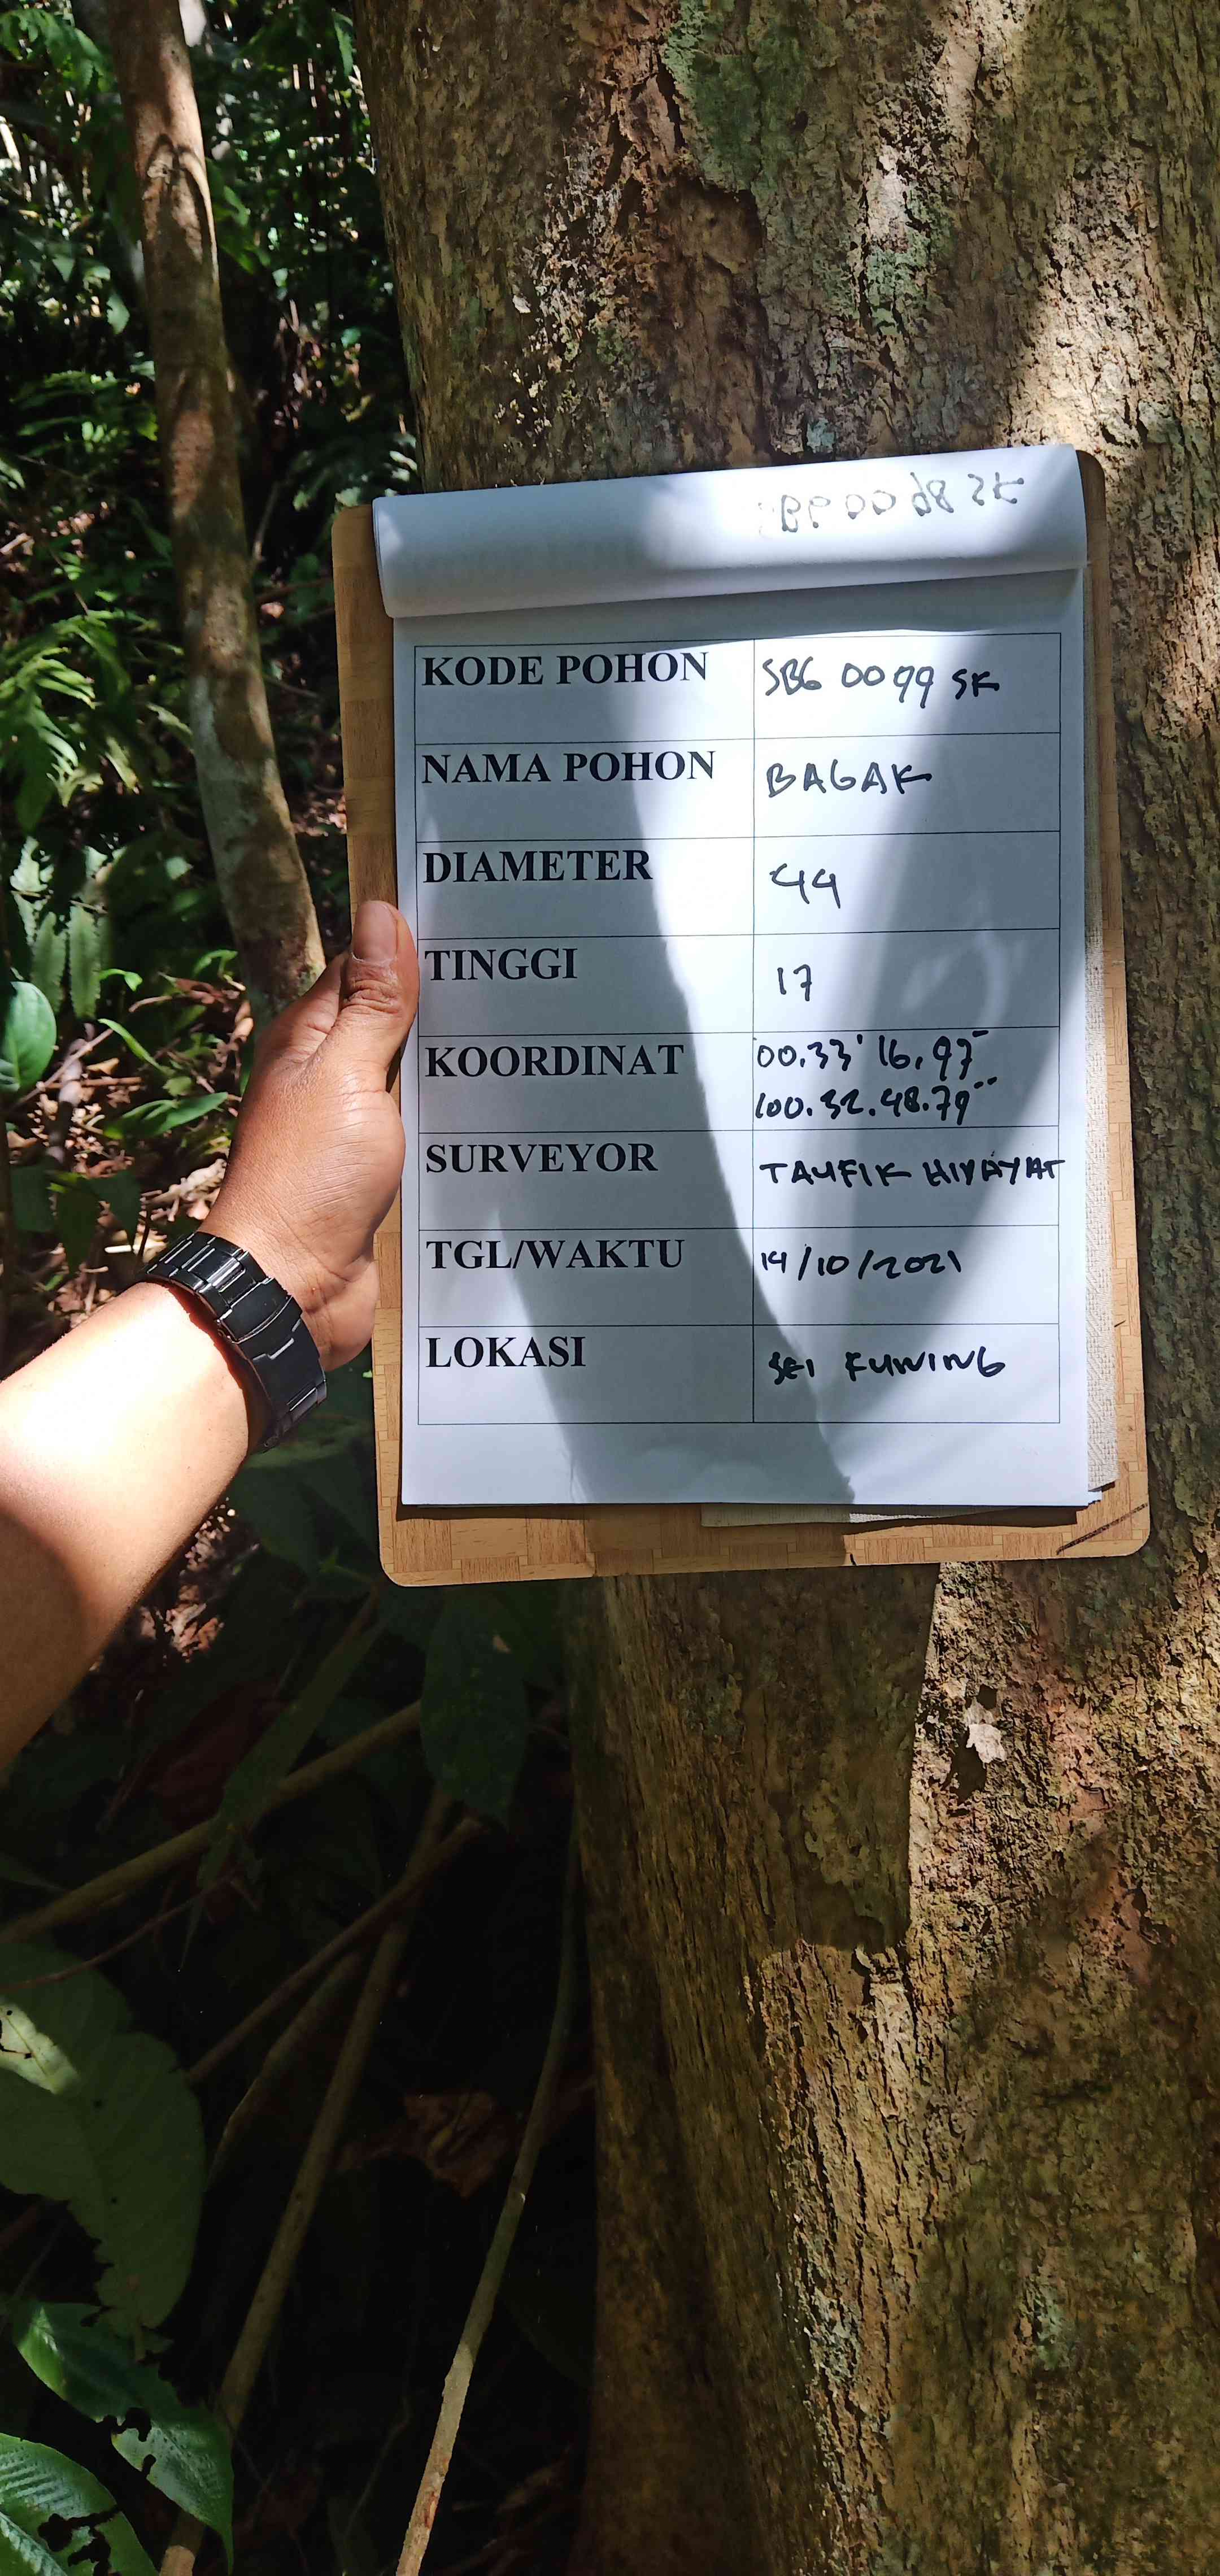 KODE POHON SBG 0099 SK
NAMA POHON BAGAK
DIAMETER 44
TINGGI 17
KOORDINAT 00.33' 16.97"
100.32.48.79"
SURVEYOR TAUFIK HIDAYAT
TGL/WAKTU 14/10/2021
LOKASI SEI KUNING